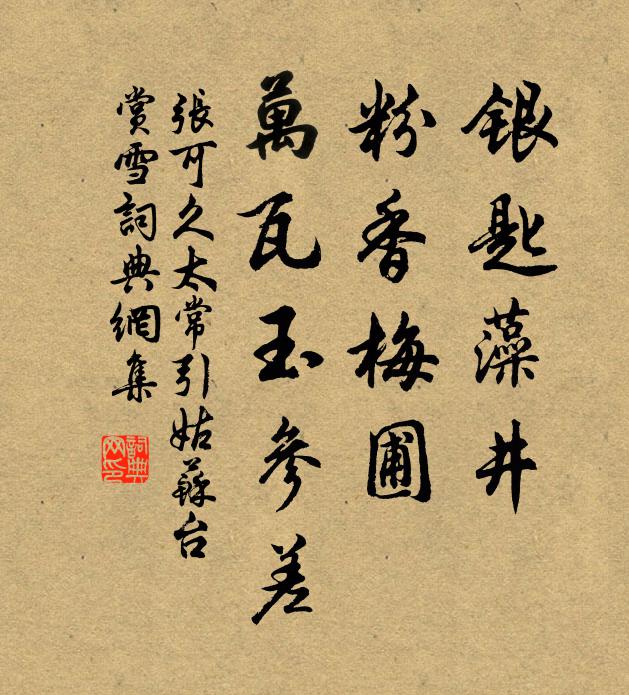 銀匙藻井
粉香梅圃
萬瓦玉參差
張可久太常引姑蘇台
賞雪詞典網集
詞典网印